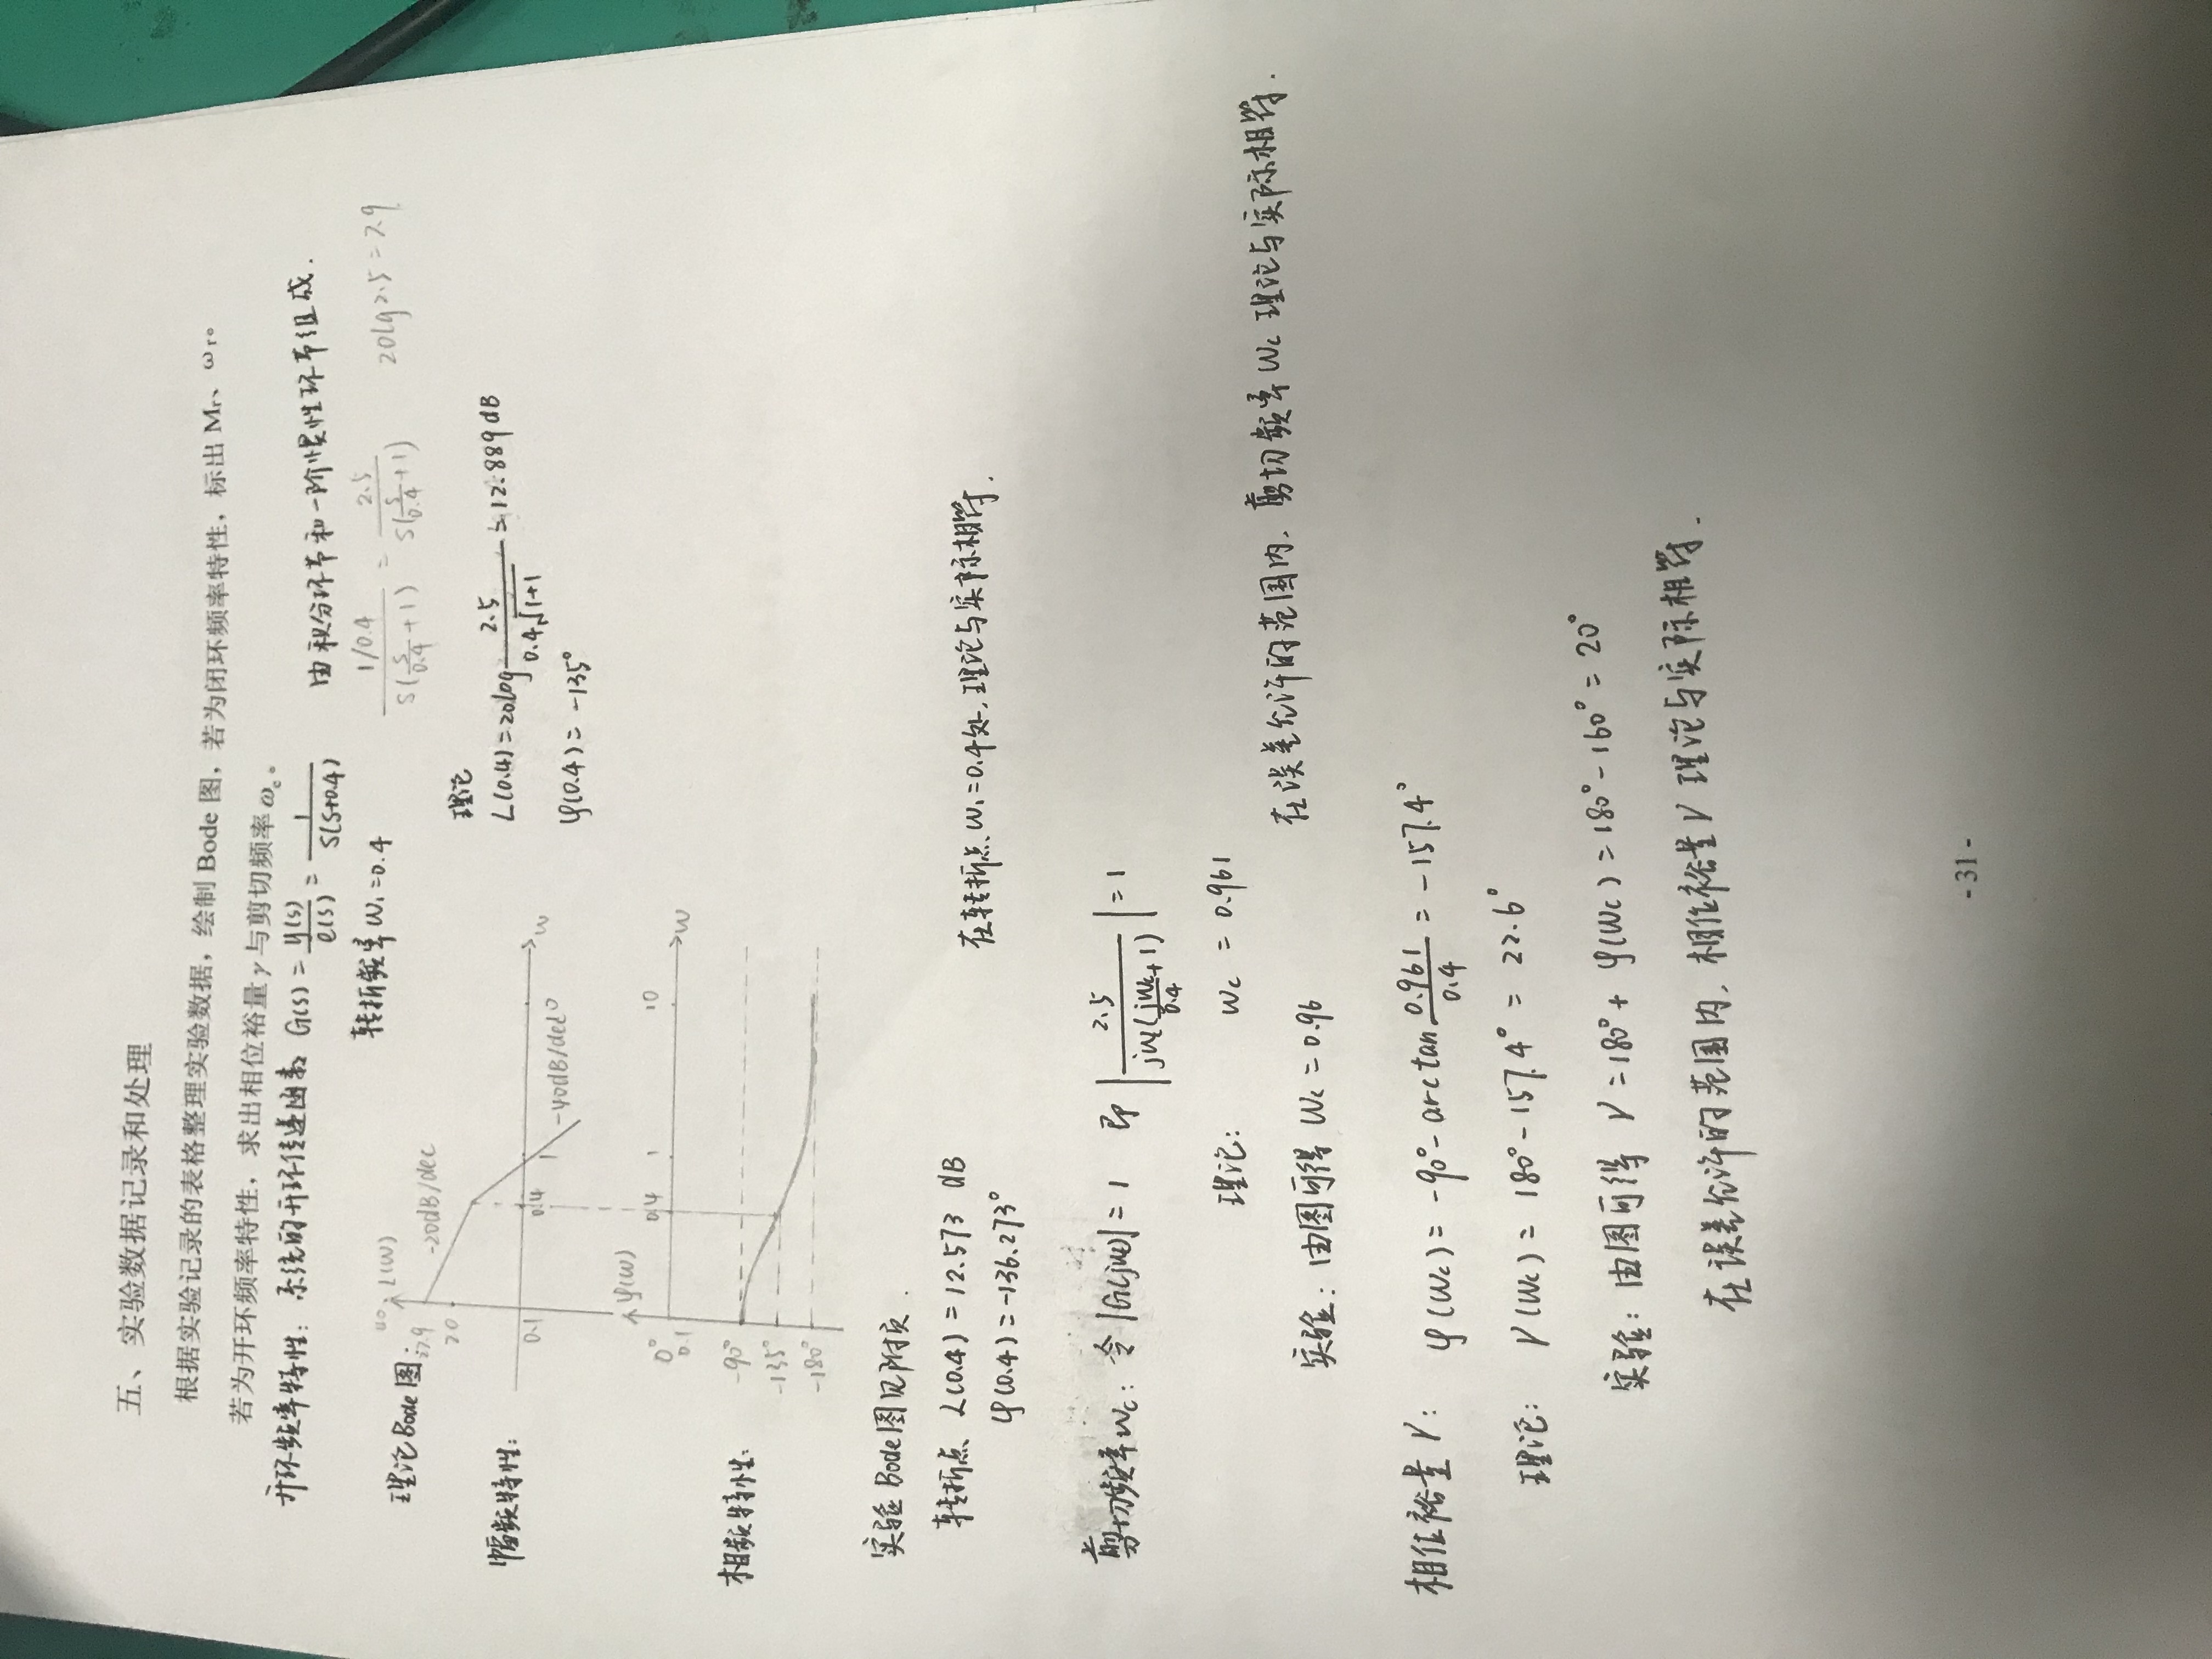 五、实验数据记录和处理
根据实验记录的表格整理实验数据，绘制 Bode 图，若为闭环频率特性，标出 Mr、ωr。
若为开环频率特性，求出相位裕量 γ 与剪切频率 ωc。
开环频率特性：系统的开环传递函数 G(s) = y(s)/e(s) = 1/(s(s+0.4)) 由积分环节和一阶惯性环节组成.
转折频率 W₁=0.4
(1/0.4)/(s(s/0.4+1)) = 2.5/(s(s/0.4+1)) 20lg2.5=7.9
理论Bode图：
40 L(w)
27.9
-20dB/dec
20
幅频特性：
0.1 0.4 1 w
-40dB/dec
理论
L(0.4)=20log 2.5/(0.4√(1+1)) = 12.889dB
φ(0.4) = -135°
φ(w)
0° 0.4 1 10
0.1 w
相频特性：
-90°
-135°
-180°
实验 Bode图见附页.
转折点 L(0.4)=12.573 dB
φ(0.4)=-136.273°
在转折点 W₁=0.4处, 理论与实际相符.
剪切频率Wc: 令 |G(jωc)|=1 即 |2.5/(jωc(jωc/0.4+1))|=1
理论： Wc = 0.961
实验：由图可得 Wc=0.96
在误差允许的范围内, 剪切频率 Wc 理论与实际相符.
相位裕量 γ: φ(Wc) = -90°- arctan 0.961/0.4 = -157.4°
理论： γ(Wc) = 180°-157.4° = 22.6°
实验：由图可得 γ=180°+ φ(Wc)=180°-160°=20°
在误差允许的范围内, 相位裕量 γ 理论与实际相符.
- 31 -